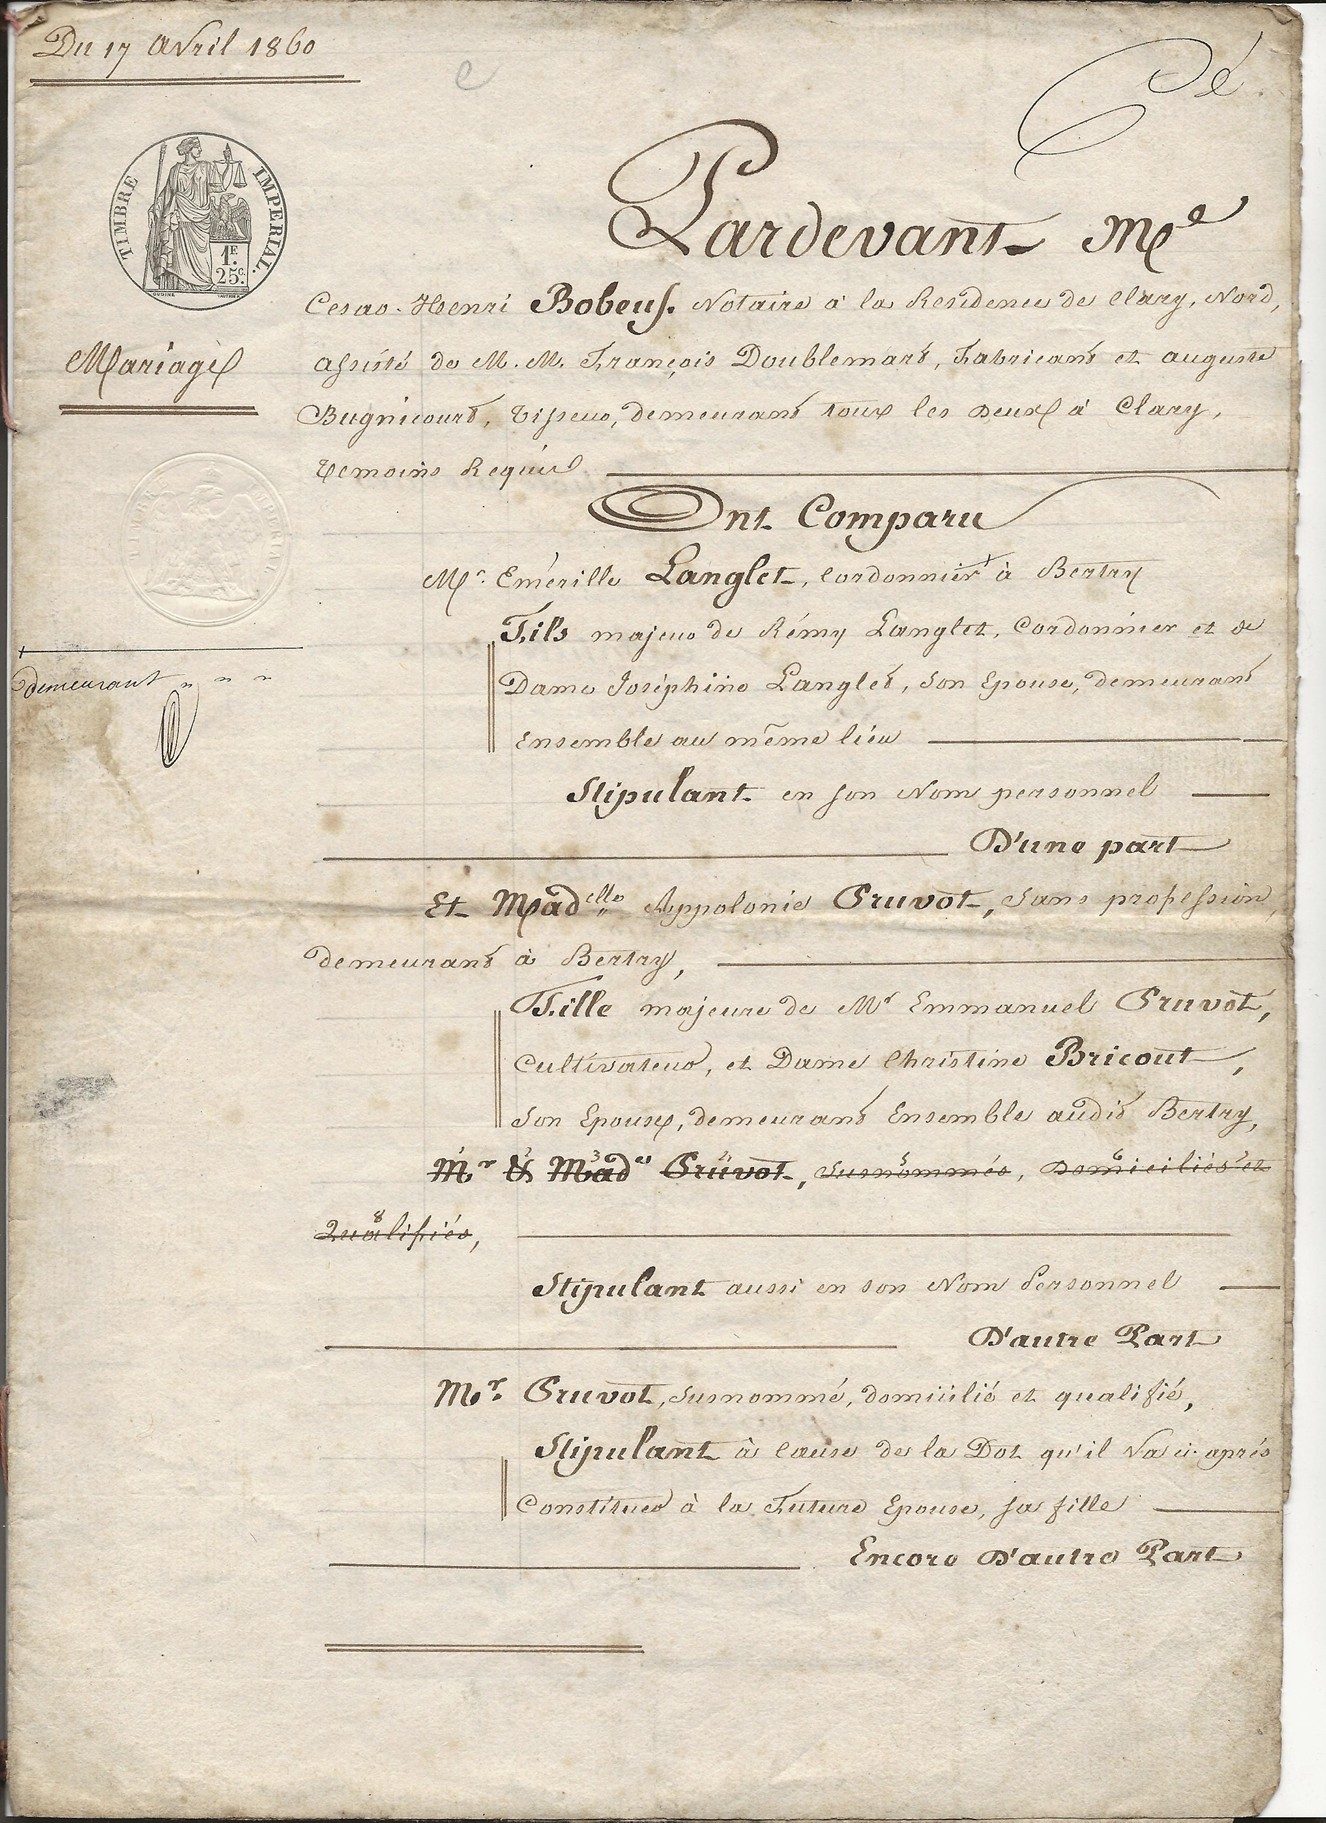 Du 17 Avril 1860
Cé
TIMBRE IMPERIAL.
1F.
25c.
Mariage
Pardevant Me
Cesar-Henri Bobeuf. Notaire à la Residence de Clary, Nord,
assisté de M. M. François Doublemart, Fabricant et auguste
Bugnicourt, Tisseur, demeurant tous les deux à Clary,
temoins Requis
Ont Comparu
Mr. Emérille Langlet, Cordonnier à Bertry
demeurant " " "
Fils majeur de Rémy Langlet, Cordonnier et de
Dame Joséphine Langlet, son Epouse, demeurant
Ensemble au même lieu
Stipulant en son Nom personnel
D'une part
Et Madelle Appolonie Pruvot, sans profession,
demeurant à Bertry,
Fille majeure de Mr Emmanuel Pruvot,
Cultivateur, et Dame Christine Bricout,
son Epouse, demeurant Ensemble audit Bertry,
Mr & Made Pruvot, susnommés, Domiciliés et
Qualifiés,
Stipulant aussi en son Nom Personnel
D'autre Part
Mr. Pruvot, susnommé, domicilié et qualifié,
Stipulant à cause de la Dot qu'il va ci-après
Constituer à la Future Epouse, sa fille
Encore D'autre Part